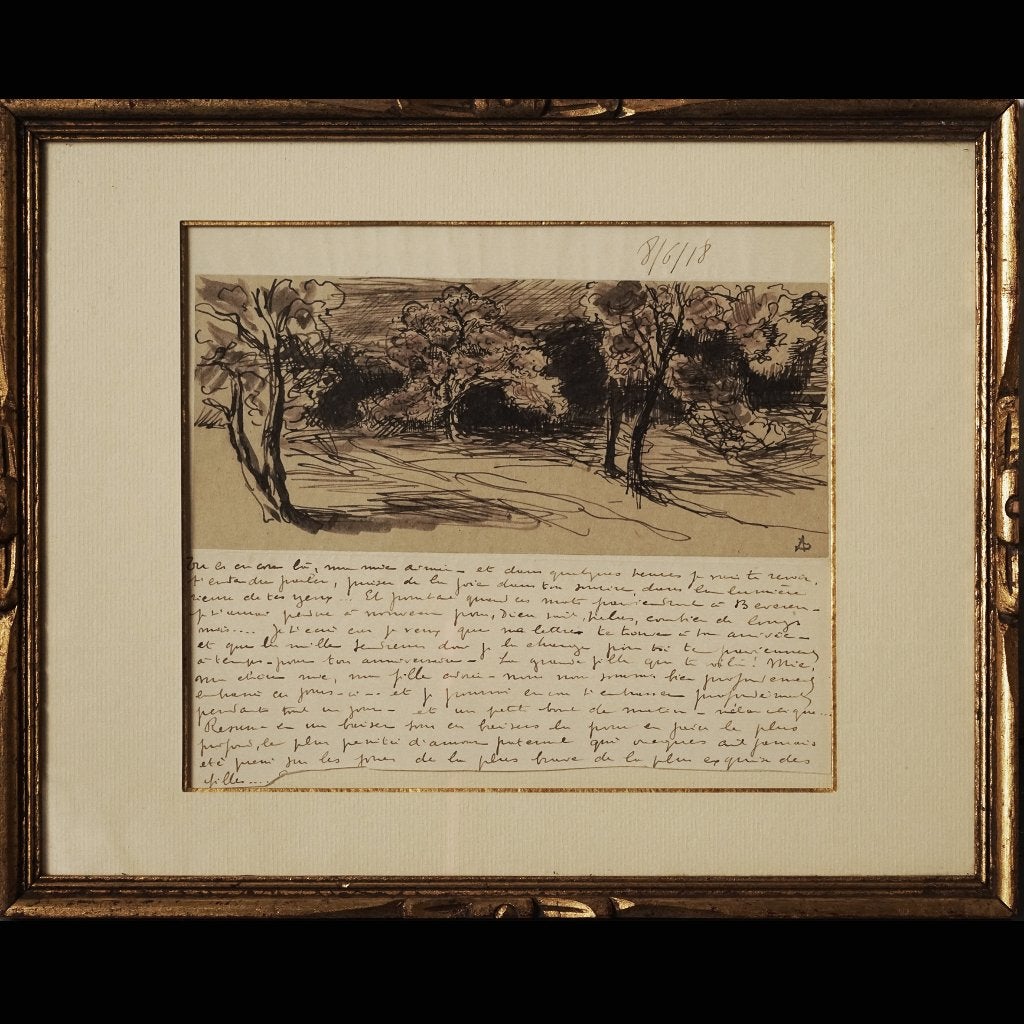 8/6/18
Tu es encore là, ma mie aimée - et dans quelques heures je vais te revoir,
t'entendre parler, puiser de la joie dans ton sourire, dans la lumière
rieuse de tes yeux... Et pourtant quand ces mots parviendront à
je t'aurai perdue à nouveau pour, Dieu sait, hélas, combien de longs
mois.... Je t'écris car je veux que ma lettre te trouve à ton arrivée -
et que les mille tendresses dont je la charge pour toi te parviennent
à temps - pour ton anniversaire - La grande fille que te voilà! Mie,
ma chère mie, ma fille adorée - nous nous sommes bien profondément
embrassé ces jours-ci - et je pourrai encore t'embrasser profondément
pendant tout un jour - et un petit bout de matin - mélancolique...
en un baiser tous ces baisers le plus
profond, le plus d'amour paternel qui ait jamais
été sur les joues de la plus brave de la plus exquise des
filles....